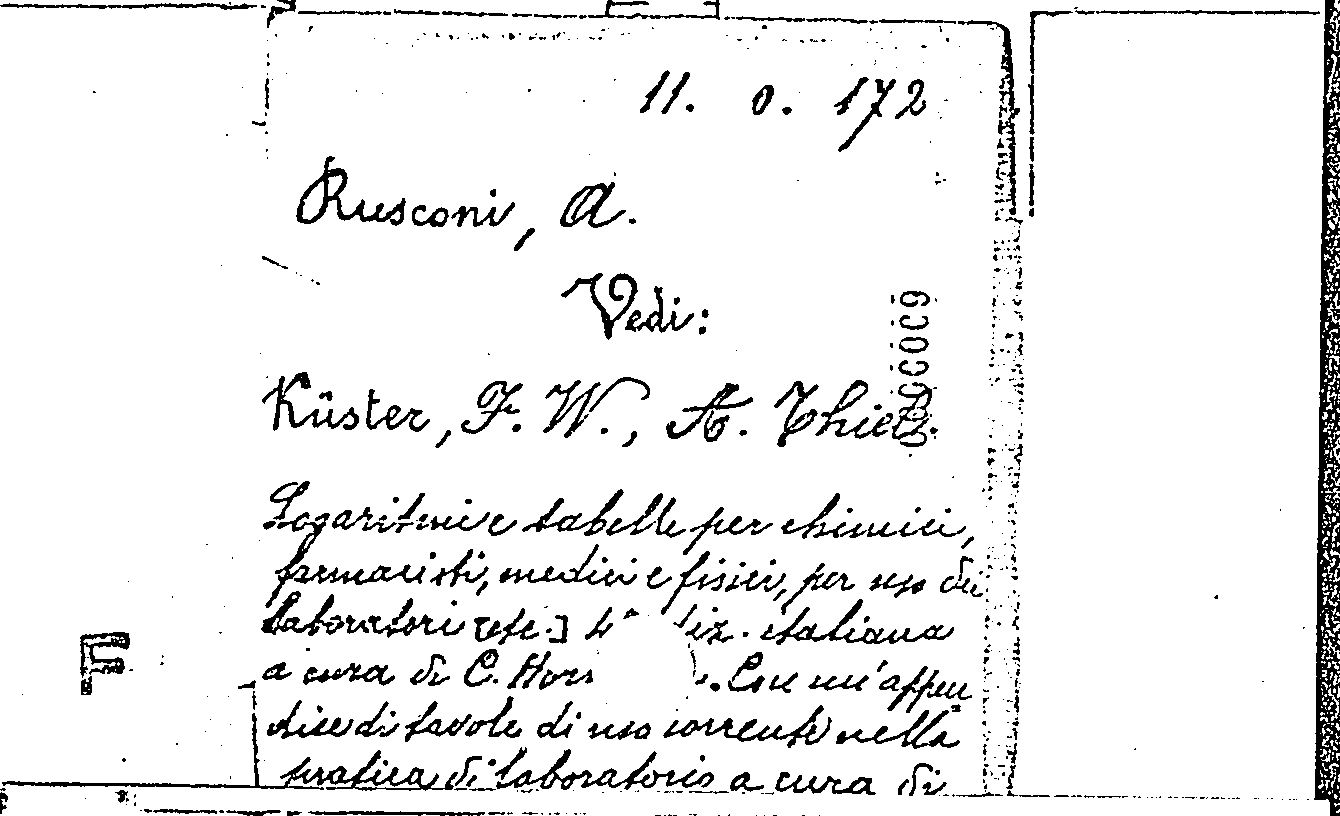 11. 0. 172
Rusconi, A.
Vedi:
Küster, F. W., A. Thiel.
Logaritmi e tabelle per chimici,
farmacisti, medici e fisici, per uso dei
laboratori [etc.] 4ª iz. italiana
a cura di C. Con un'appen
dice di tavole di uso corrente nella
pratica di laboratorio a cura di
F